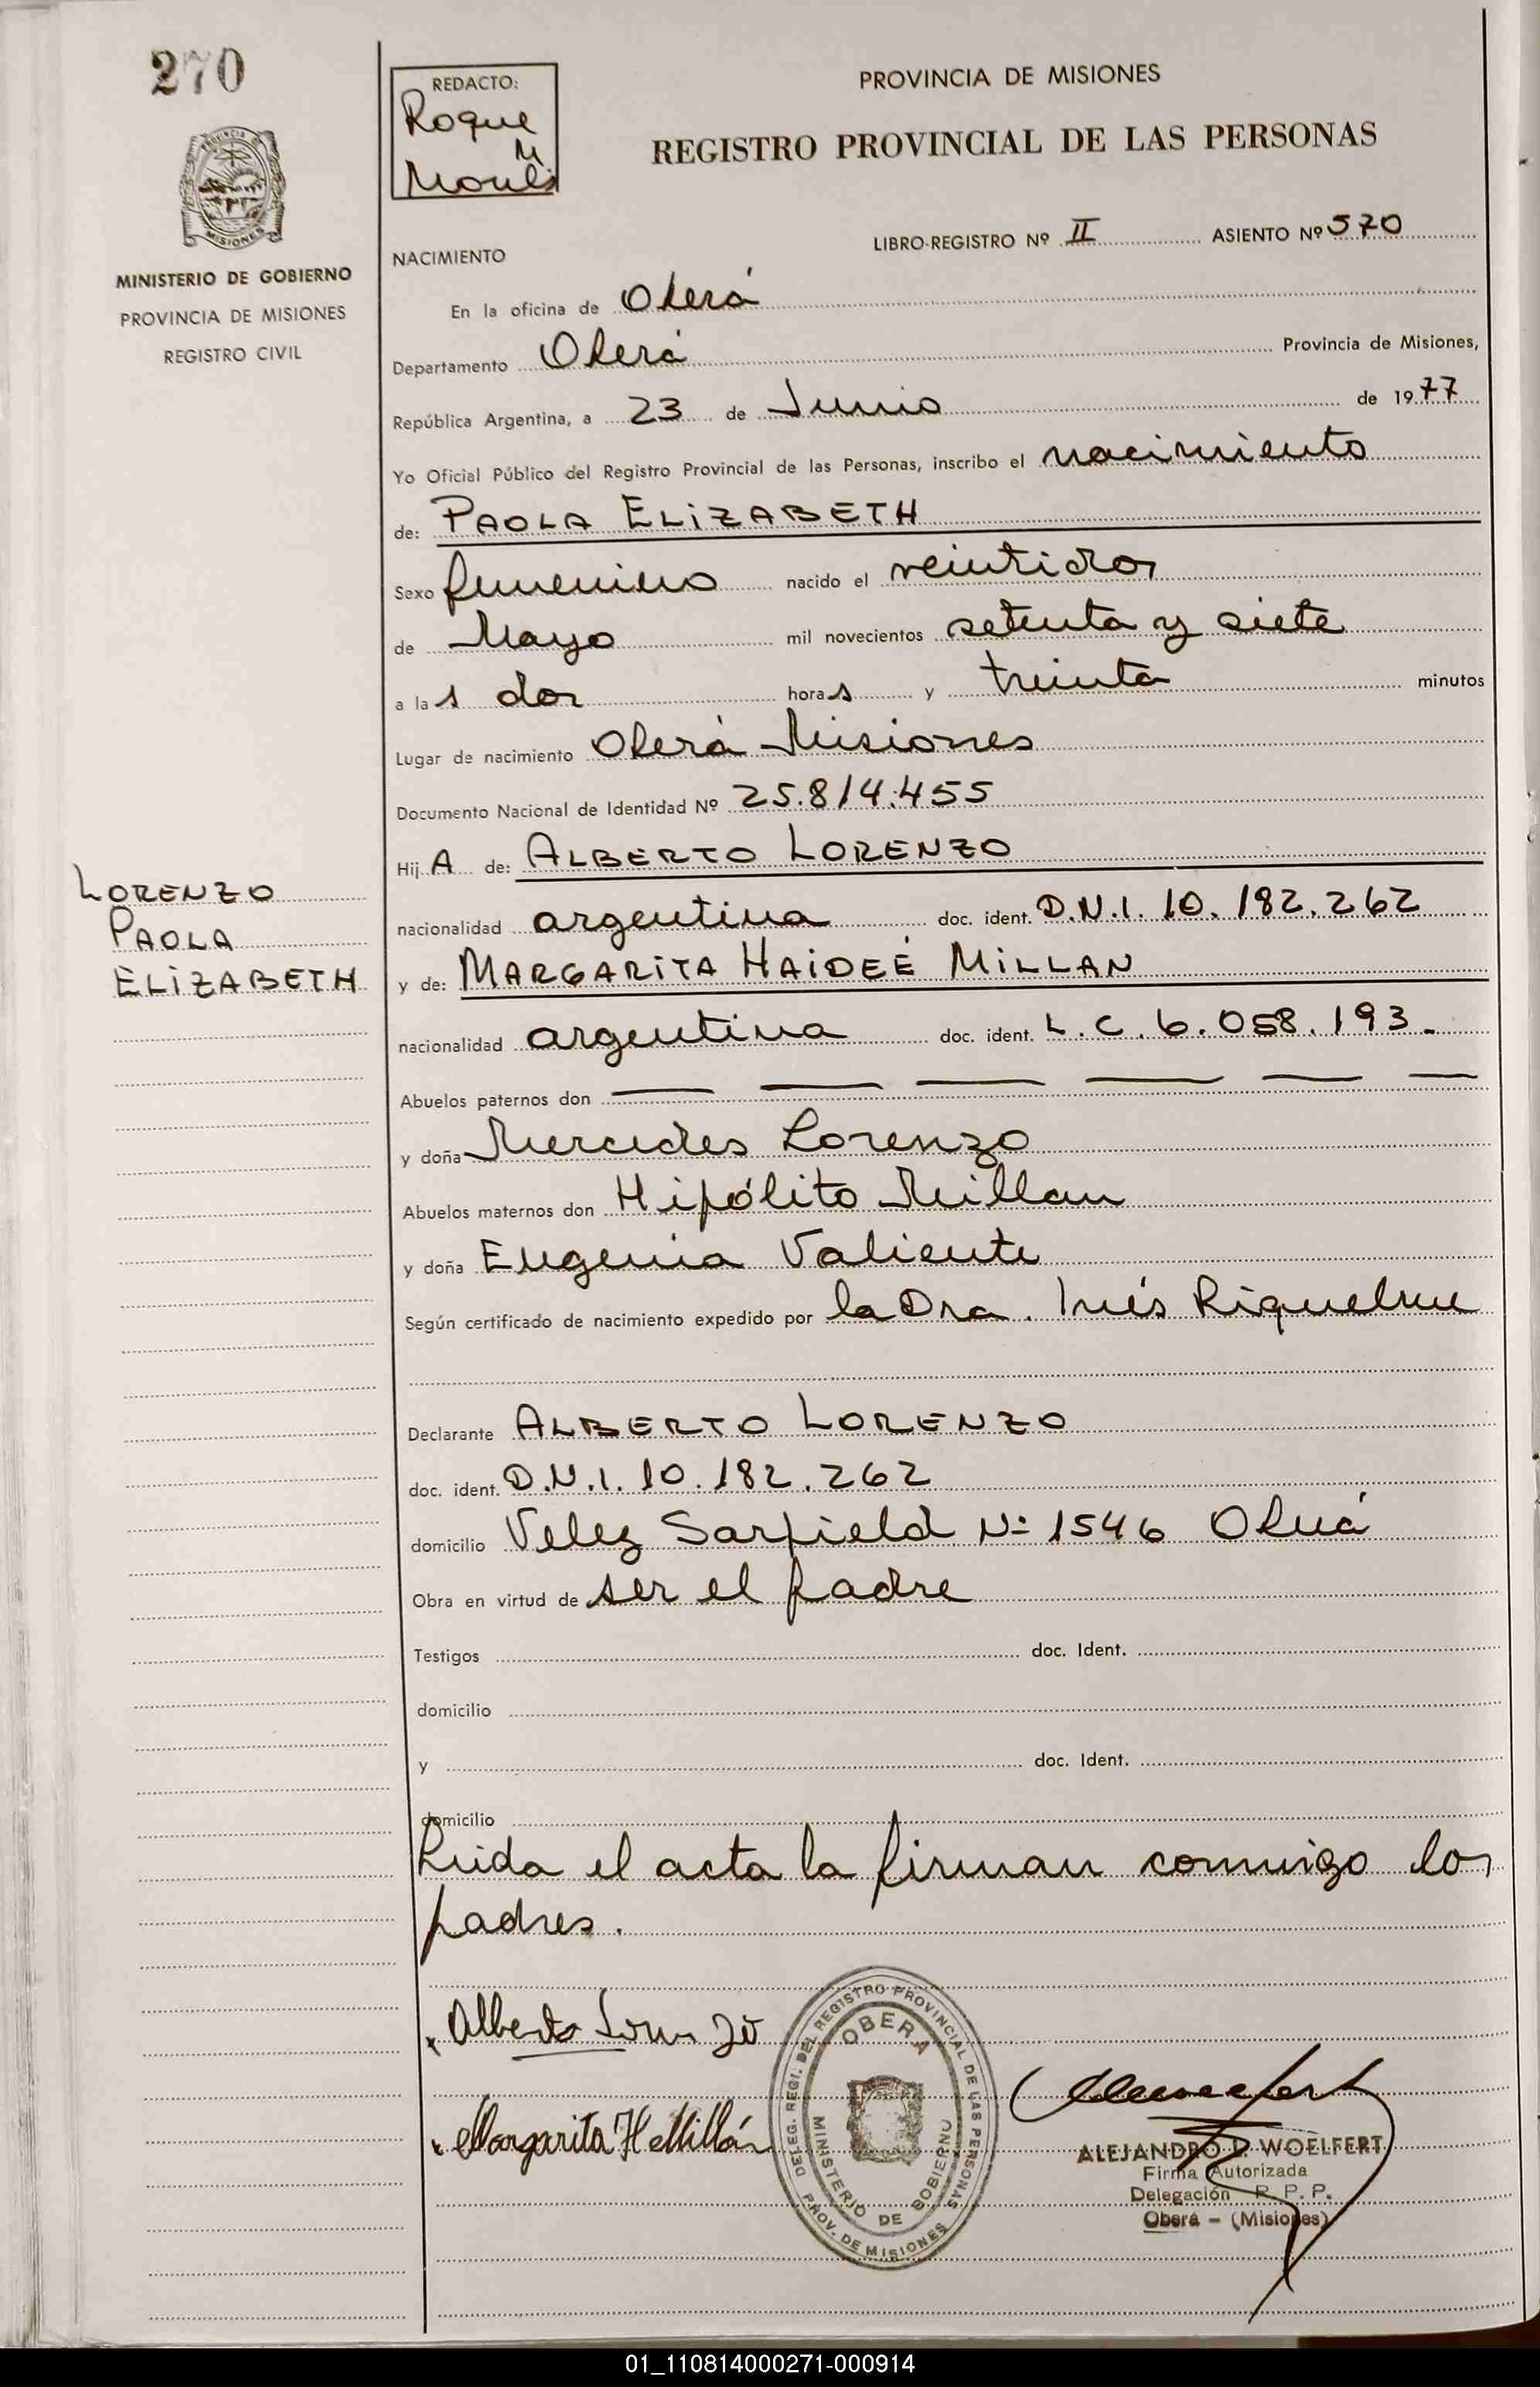 270
PROVINCIA
MISIONES
MINISTERIO DE GOBIERNO
PROVINCIA DE MISIONES
REGISTRO CIVIL
LORENZO
PAOLA
ELIZABETH
REDACTO:
Roque
M
PROVINCIA DE MISIONES
REGISTRO PROVINCIAL DE LAS PERSONAS
LIBRO-REGISTRO Nº II ASIENTO Nº 570
NACIMIENTO
En la oficina de Oberá
Departamento Oberá Provincia de Misiones,
República Argentina, a 23 de Junio de 1977
Yo Oficial Público del Registro Provincial de las Personas, inscribo el nacimiento
de: PAOLA ELIZABETH
Sexo femenino nacido el veintidos
de Mayo mil novecientos setenta y siete
a las dos horas y treinta minutos
Lugar de nacimiento Oberá Misiones
Documento Nacional de Identidad Nº 25.814.455
HijA de: ALBERTO LORENZO
nacionalidad argentina doc. ident. D.N.I. 10.182.262
y de: MARGARITA HAIDEÉ MILLAN
nacionalidad argentina doc. ident. L.C. 6.058.193.
Abuelos paternos don — — — — — —
y doña Mercedes Lorenzo
Abuelos maternos don Hipólito Millan
y doña Eugenia Valiente
Según certificado de nacimiento expedido por la Dra. Inés Riquelme
Declarante ALBERTO LORENZO
doc. ident. D.N.I. 10.182.262
domicilio Velez Sarfield Nº 1546 Oberá
Obra en virtud de ser el padre
Testigos doc. Ident.
domicilio
y doc. Ident.
domicilio
Leida el acta la firman conmigo los
padres.
Alberto Lorenzo
Margarita H Millán
DELEG. REGI. DEL REGISTRO PROVINCIAL DE LAS PERSONAS
PROV. DE MISIONES
OBERA
MINISTERIO DE GOBIERNO
ALEJANDRO L. WOELFERT
Firma Autorizada
Delegación R. P. P.
Oberá - (Misiones)
01_110814000271-000914